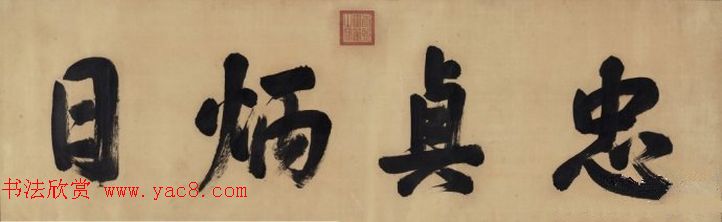 忠貞炳日
书法欣赏 www.yac8.com